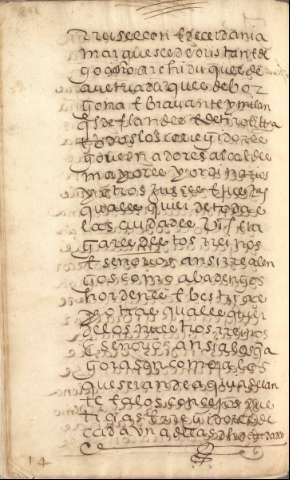 Ruisellon E de cerdania
marqueses de oristan E de
goçiano archiduques de
avstria duques de bor
gona E bravante y milan
qs de flandes E de tirol Etta
E todos los coregidores
governadores alcaldes
mayores y ordinarios
y otros jueses E justiçias
qualesquier de todas
las çiudades villas E lu
gares destos reinos
E señorios ansi realen
gos como abadengos
hordenes E behetrias
y otros qualesquier
de los nuestros reinos
E señorios ansi a los q̃ a
gora son como a los
que seran de aqui adelan
te E a los conçejos jus
tiçias E regidores de
cada
14